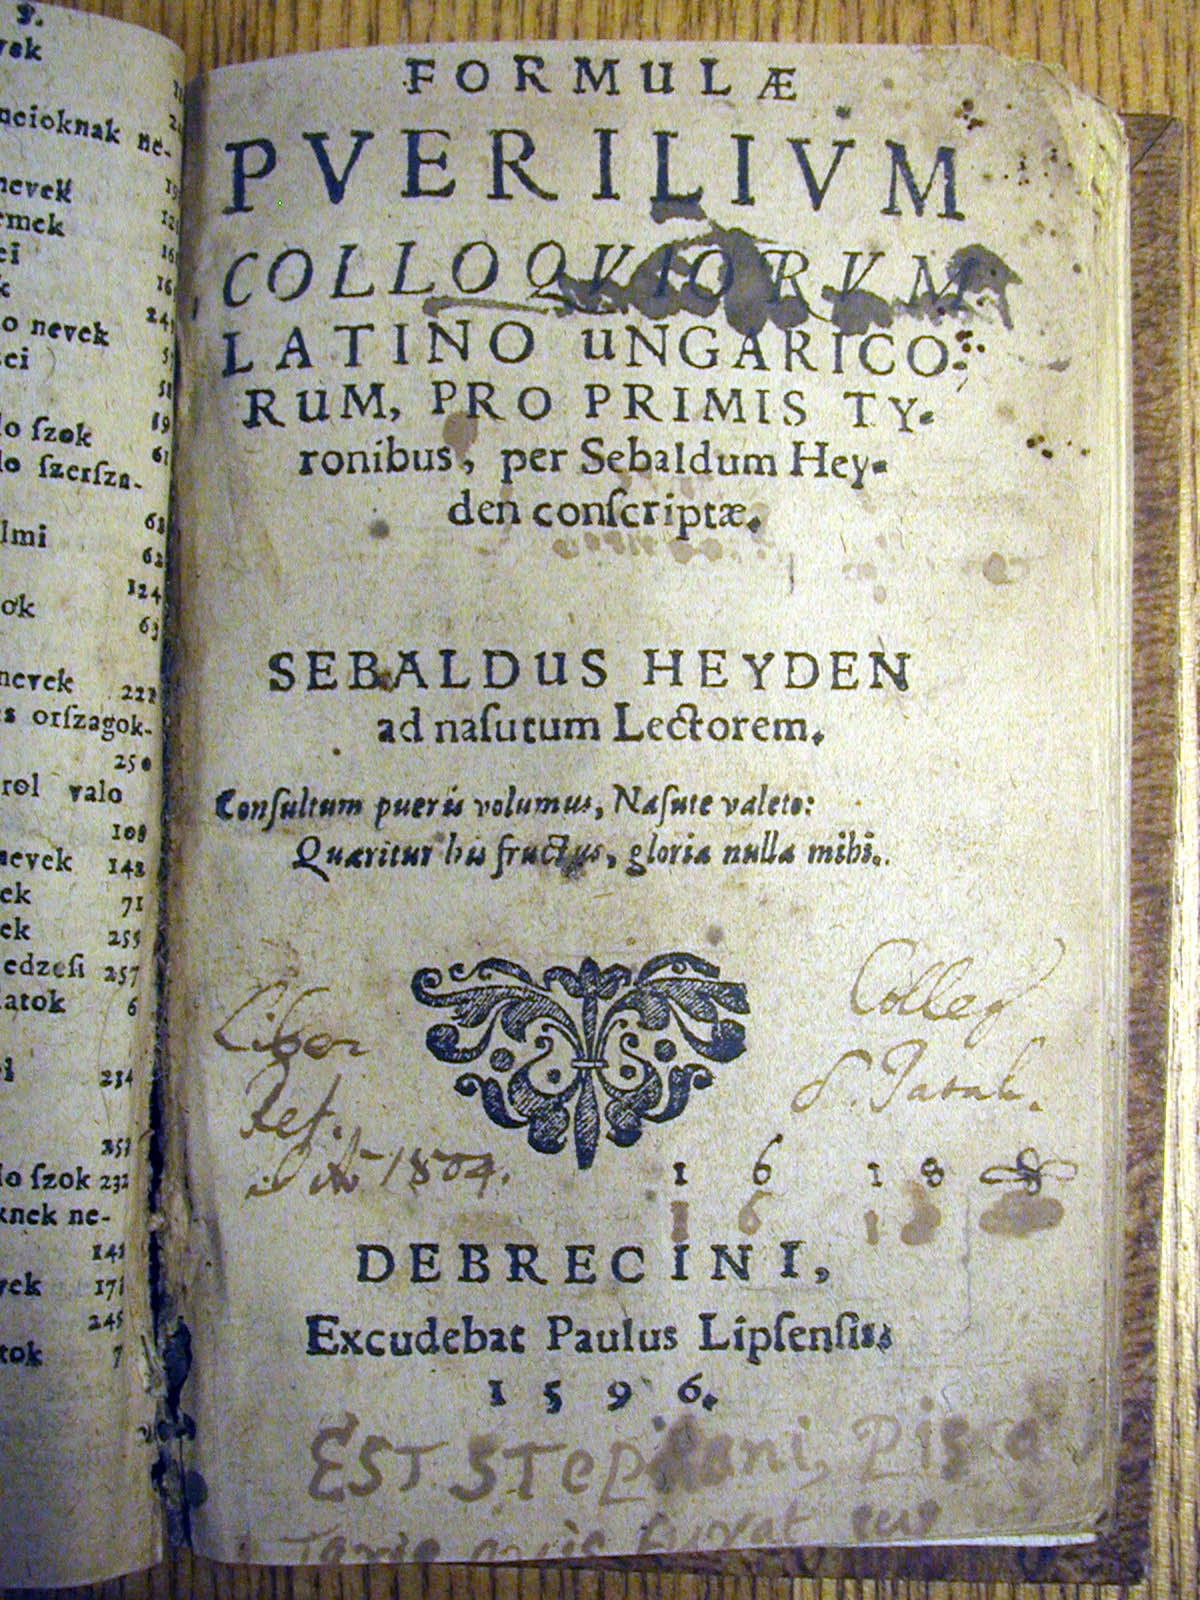 vek
ncioknak ne-
nevek
emek
ei
k
o nevek
ei
lo ſzok
lo ſzerſza-
68
lmi
62
124
ok
63
nevek 221
es orſzagok-
250
rol valo
108
nevek 142
ek 71
ek 255
edzeſi 257
latok 6
ei 234
251
lo ſzok 232
knek ne-
141
vek 171
245
tok 7
FORMULÆ
PVERILIVM
COLLOQVIORVM
LATINO uNGARICO-
RuM, PRO PRIMIS TY-
ronibus, per Sebaldum Hey-
den conſcriptæ.
SEBALDuS HEYDEN
ad naſutum Lectorem.
Conſultum pueris volumus, Naſute valeto:
Quæritur his fructus, gloria nulla mihi.
Liber Colleg
Ref. S. Patak.
Aō 1804.
1 6 1 8
DEBRECINI,
Excudebat Paulus Lipſenſis.
1596.
EST STEphani, Pis